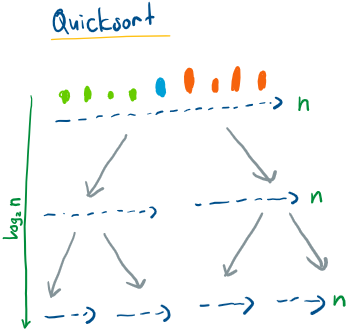 Quicksort
n
log₂n
n
n